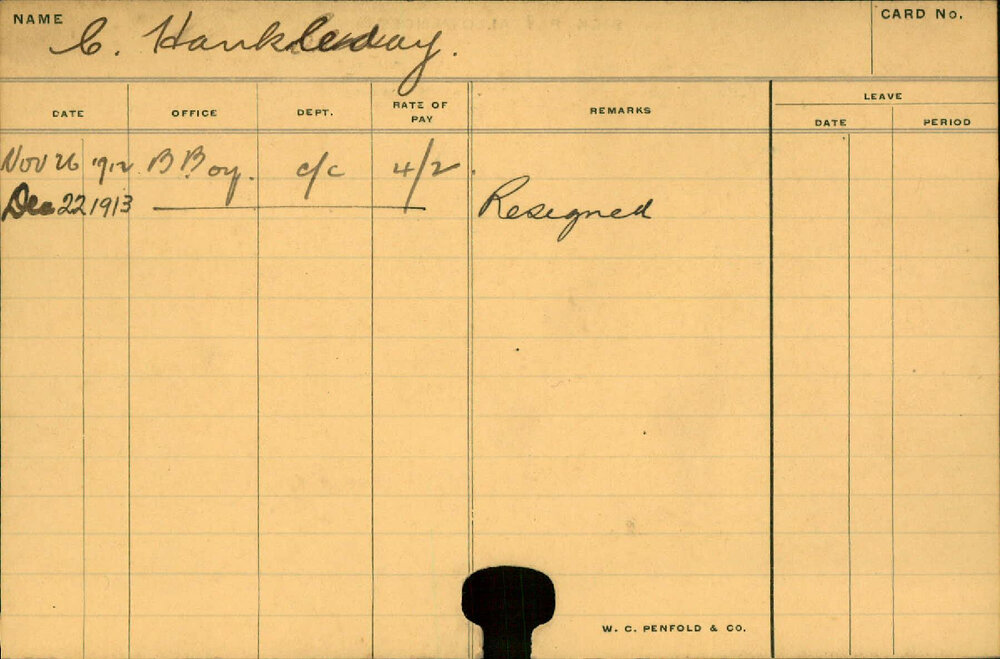 NAME C. Hankleday. CARD No.
DATE OFFICE DEPT. RATE OF PAY REMARKS LEAVE
DATE PERIOD
Nov 26 1912 B Boy. c/c 4/2.
Dec 22 1913 Resigned
W. C. PENFOLD & CO.